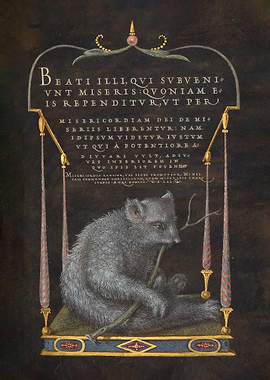 BEATI ILLI, QUI SUBVENI-
UNT MISERIS: QUONIAM E-
IS REPENDITUR, UT PER
MISERICORDIAM DEI DE MI-
SERIIS LIBERENTUR: NAM
ID IPSUM VIDITUR IUSTUM
UT QUI À POTENTIORE A-
DIUVARI VULT, ADIU-
VET INFERIOREM IN
QUO IPSE EST POTENT